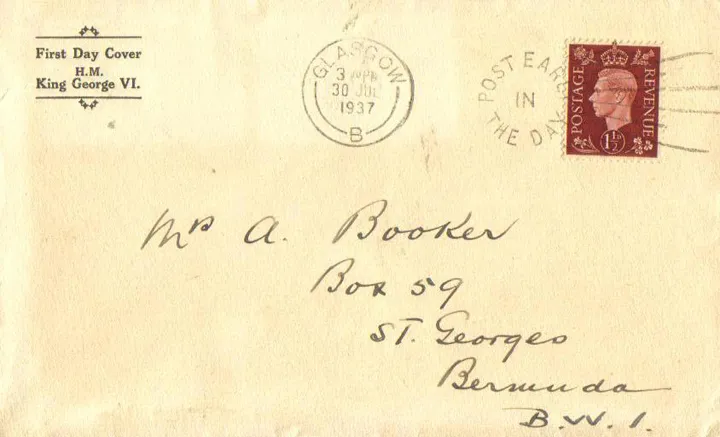 First Day Cover
H.M.
King George VI.
GLASGOW
3 PM
30 JUL
1937
B
POST EARLY
IN
THE DAY
POSTAGE
REVENUE
1½D
Mrs A. Booker
Box 59
ST. Georges
Bermuda
B.W.I.